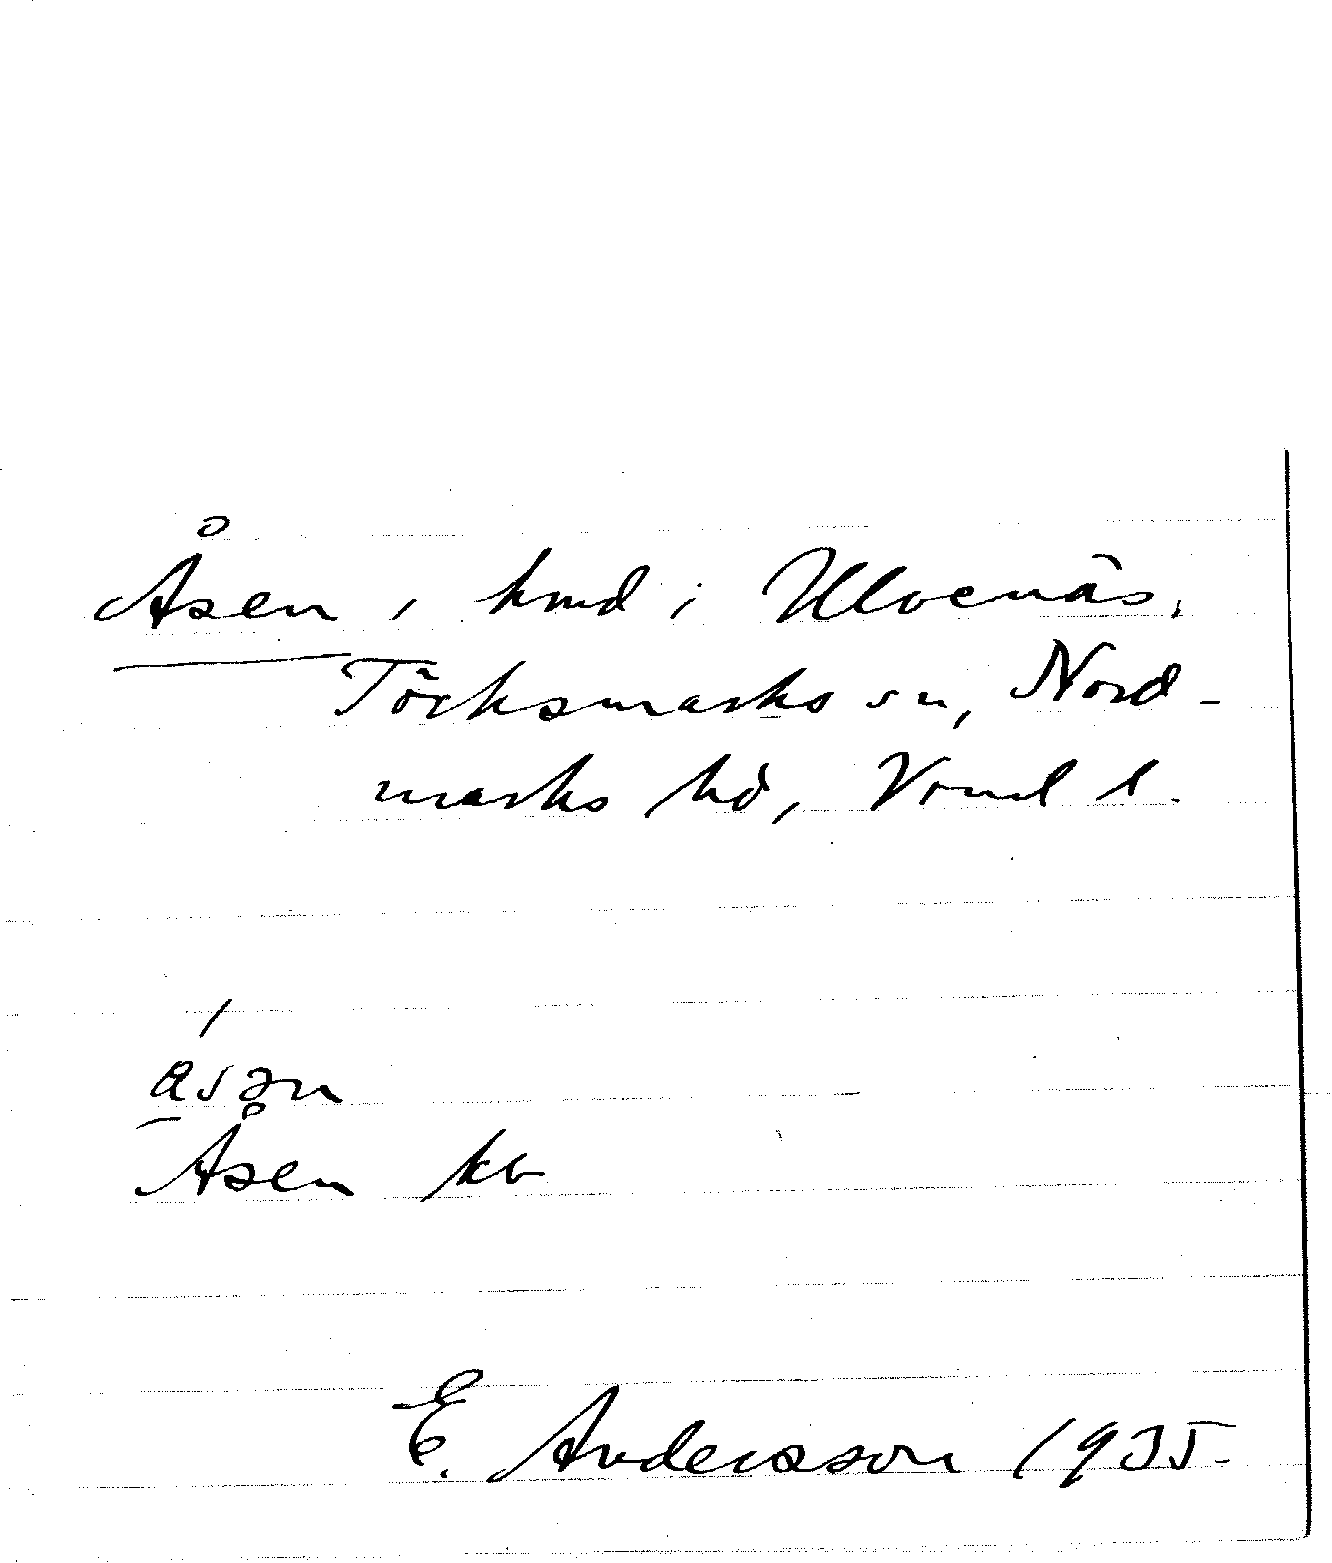 Åsen, hmd i Ulvenäs,
Töcksmarks sn, Nord-
marks hd, Vrml l.
ásən
Åsen kb
E. Andersson 1935.